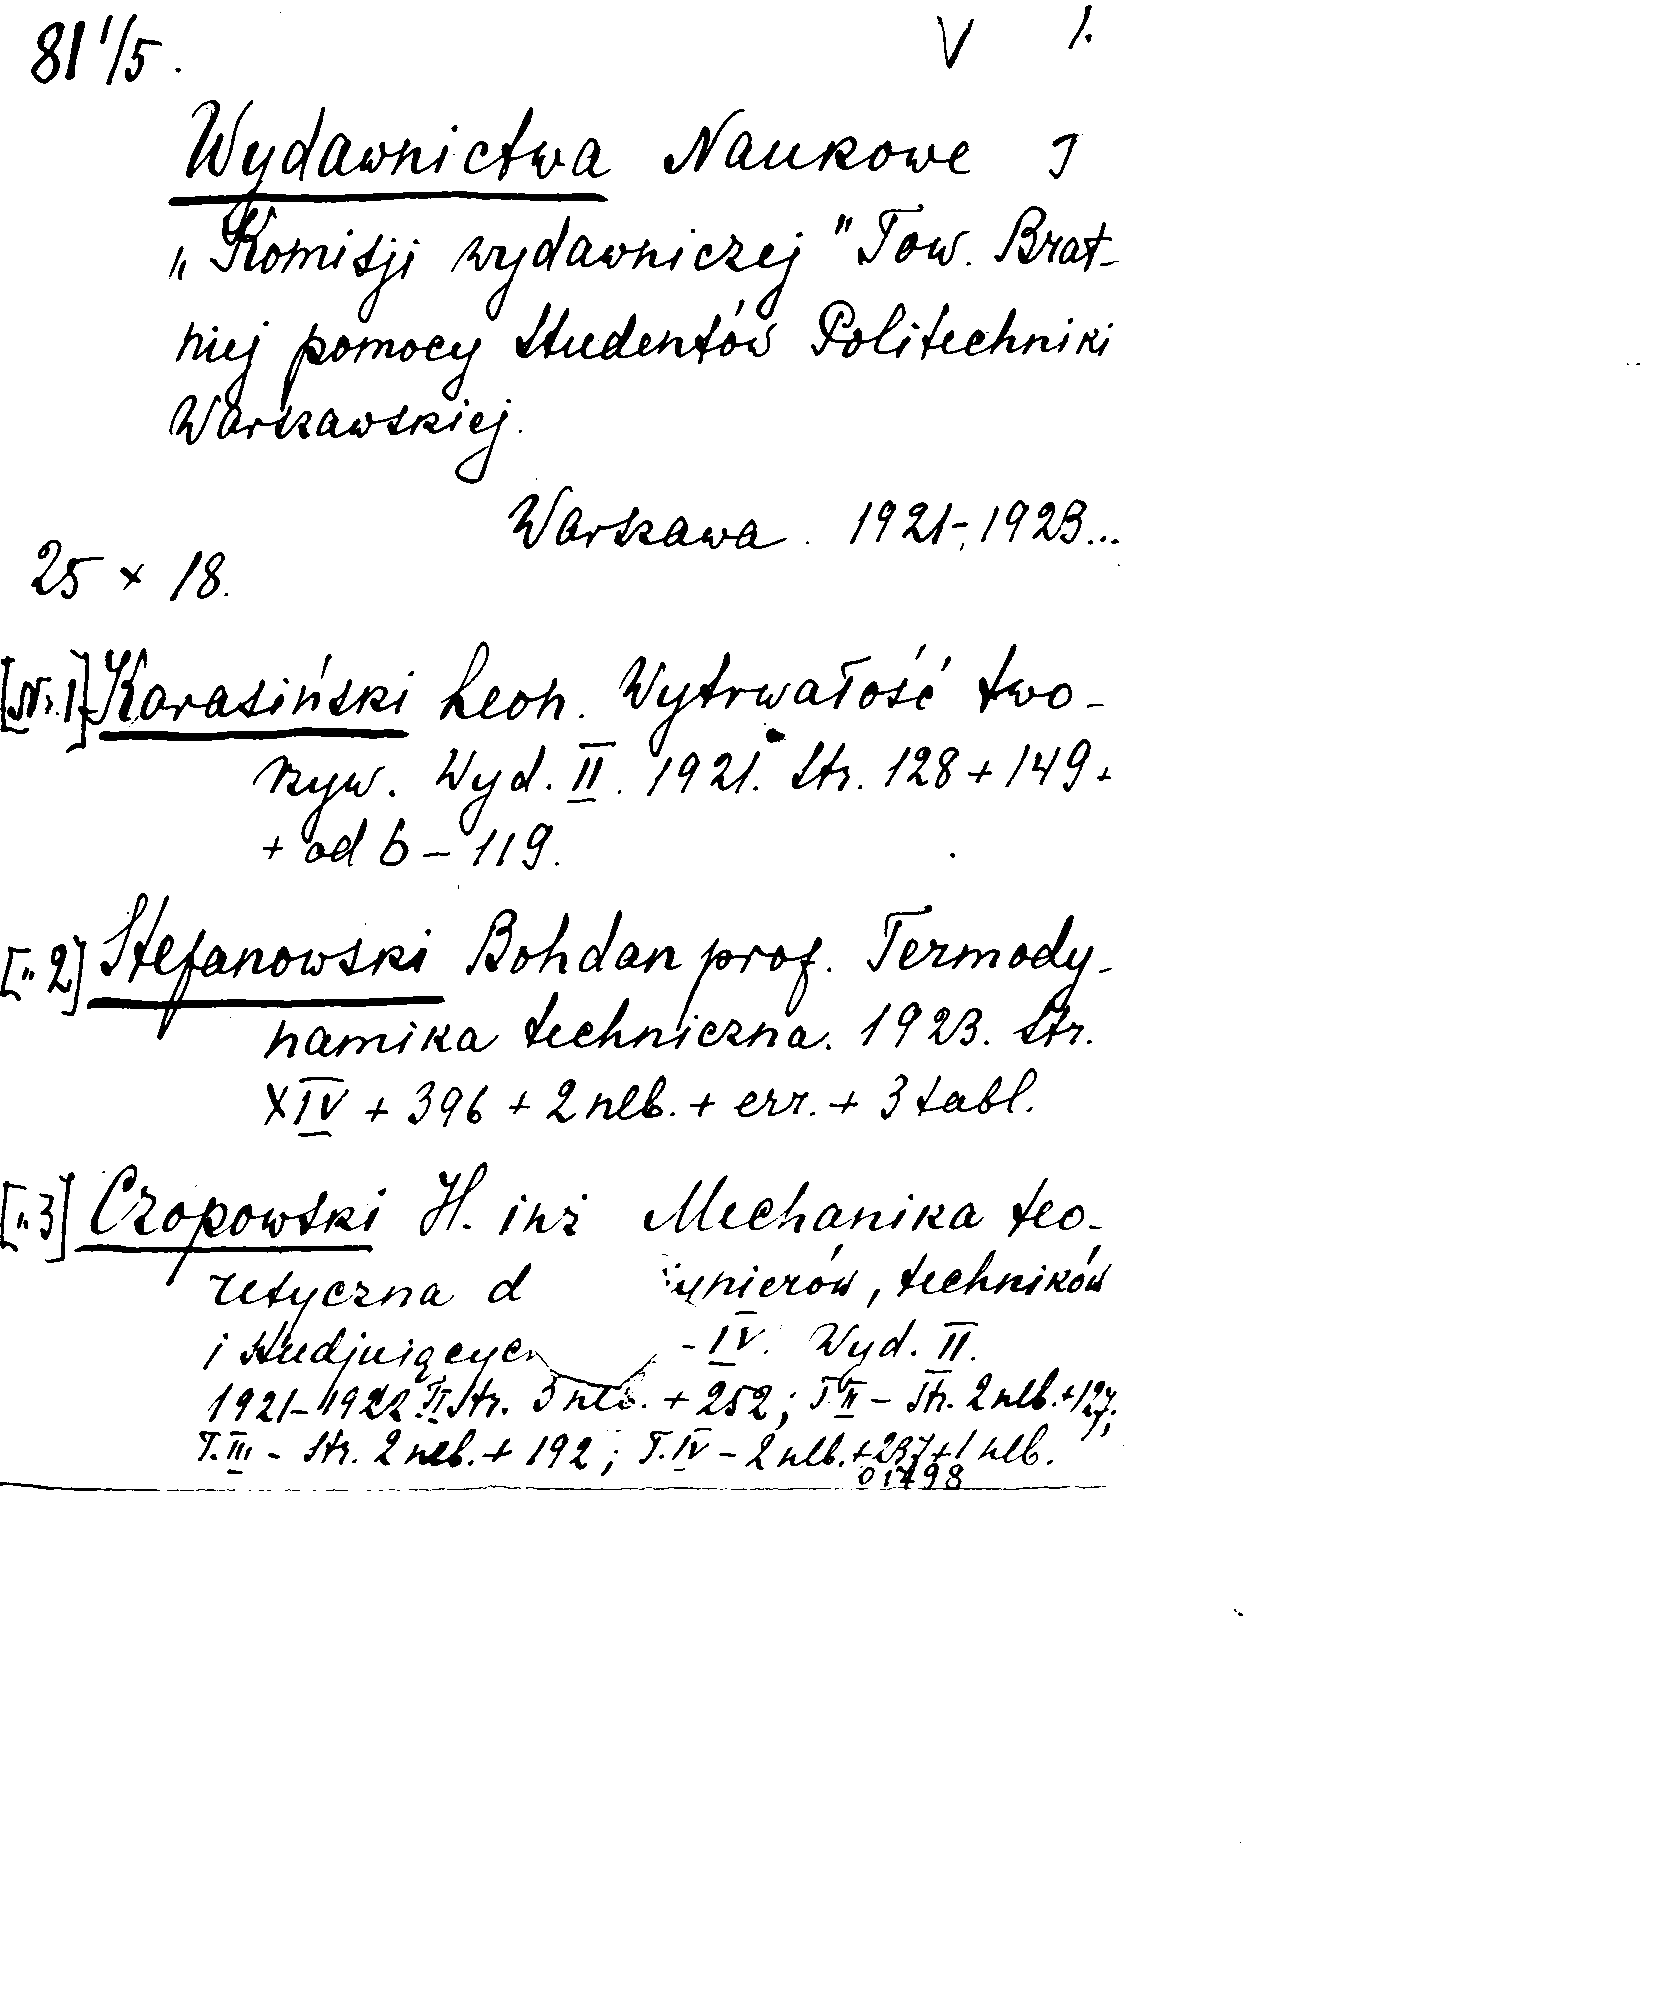 81 1/5. V 1.
Wydawnictwa Naukowe
„Komisji wydawniczej" Tow. Brat-
niej pomocy Studentów Politechniki
Warszawskiej.
Warszawa. 1921-1923...
25 x 18.
[Nr. 1] Karasiński Leon. Wytrwałość two-
rzyw. Wyd. II. 1921. Str. 128 + 149 +
+ od 6 - 119.
[" 2] Stefanowski Bohdan prof. Termody-
namika techniczna. 1923. Str.
XIV + 396 + 2 nlb. + err. + 3 tabl.
[" 3] Czopowski H. inż Mechanika teo-
retyczna d ynierów, techników
i studjujących - IV. Wyd. II.
1921-1922 Str. 3 nlb. + 252; T II - Str. 2 nlb. + 127;
T. III - Str. 2 nlb. + 192; T. IV - 2 nlb. + 237 + 1 nlb.
01498